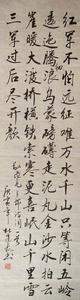 红军不怕远征难万水千山只等闲五岭
逶迤腾细浪乌蒙磅礴走泥丸金沙水拍云
崖暖大渡桥横铁索寒更喜岷山千里雪
三军过后尽开颜